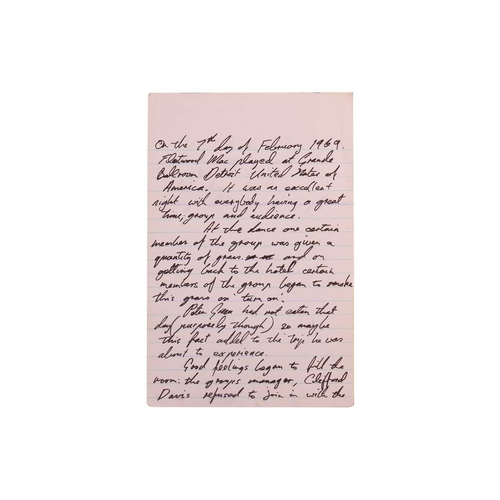 On the 7th day of February 1969.
Fleetwood Mac played at Grande
Ballroom Detroit United States of
America. It was an excellent
night with everybody having a great
time; group and audience.
At the dance one certain
member of the group was given a
quantity of grass. and on
getting back to the hotel certain
members of the group began to smoke
this grass or 'turn on'.
Peter Green had not eaten that
day (purposely though) so maybe
this fact added to the trip he was
about to experience.
Good feelings began to fill the
room: the groups manager, Clifford
Davis refused to join in with the